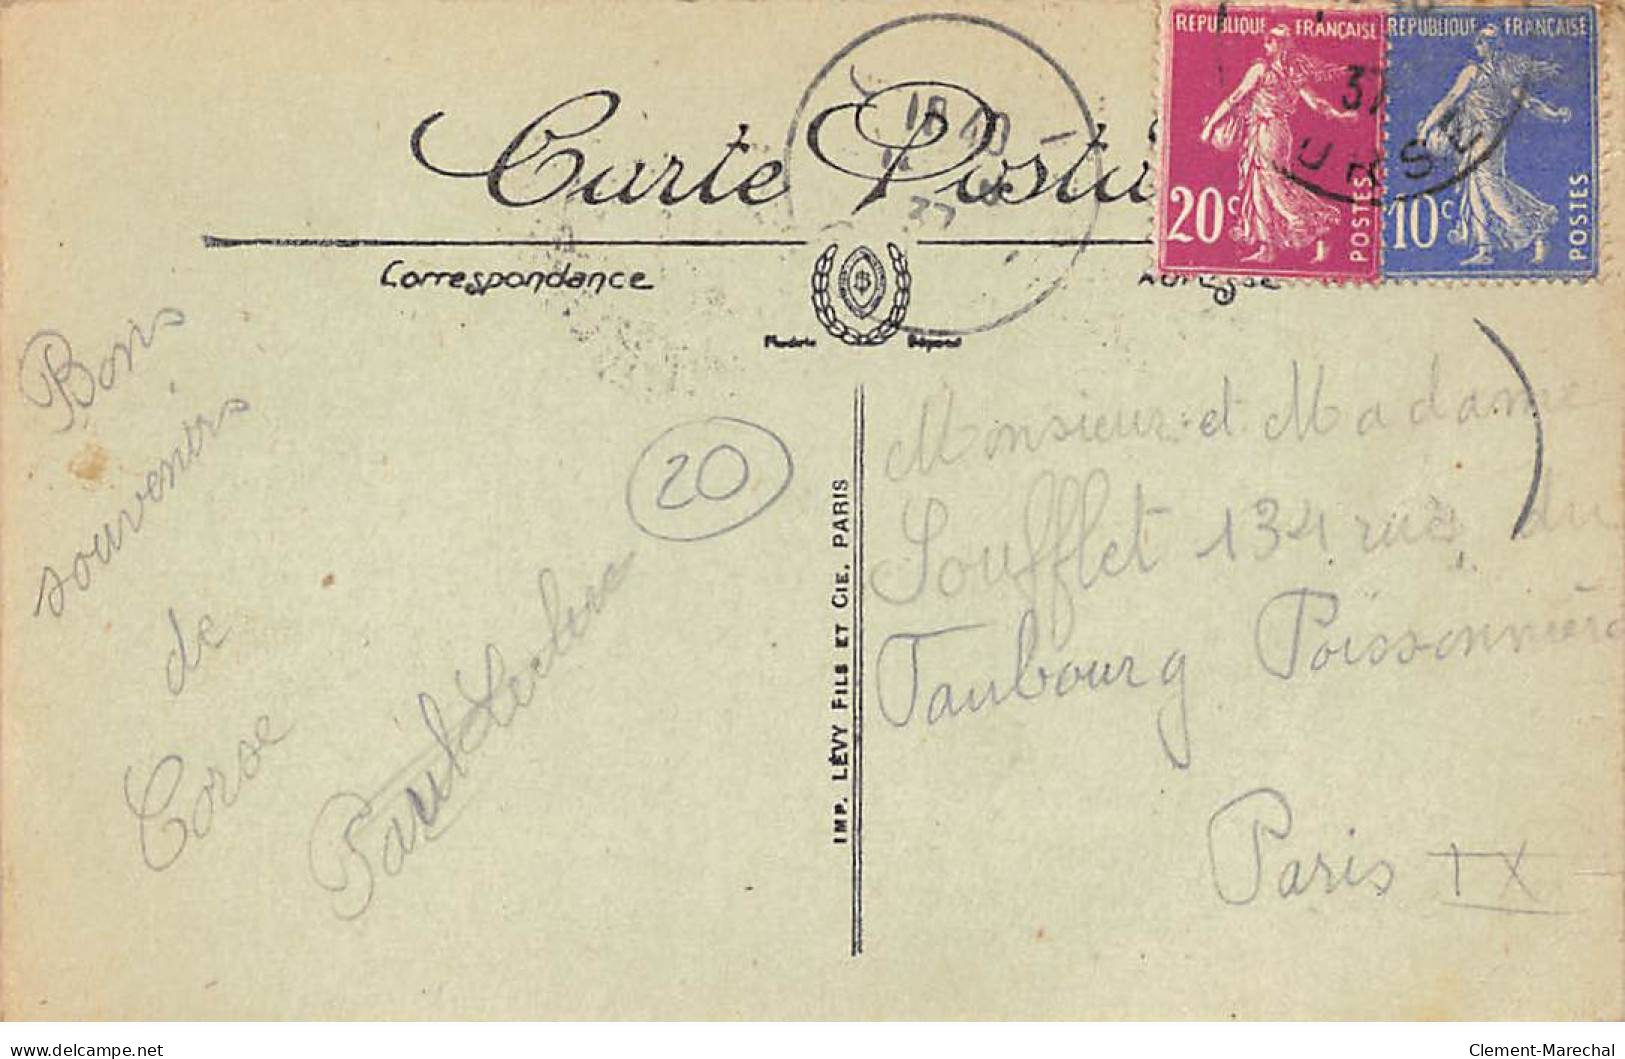 REPUBLIQUE FRANÇAISE
20c
POSTES
REPUBLIQUE FRANÇAISE
10c
POSTES
37
Carte Posta
Correspondance
Modèle Déposé
Bons
souvenirs
de
Corse
Paul
20
IMP. LÉVY FILS ET CIE. PARIS
Monsieur et Madame
Soufflet 134 rue du
Faubourg Poissonnière
Paris IX
delcampe.net
Clement-Marechal